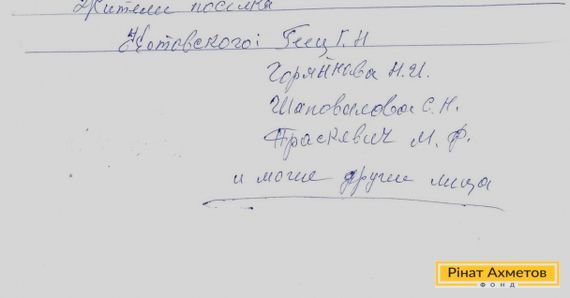 Жители поселка
Котовского: Гец Г. Н
Горяйнова Н. И.
Шаповалова С. Н.
Праскевич М. Ф.
и могие другие лица
Рінат Ахметов
ФОНД